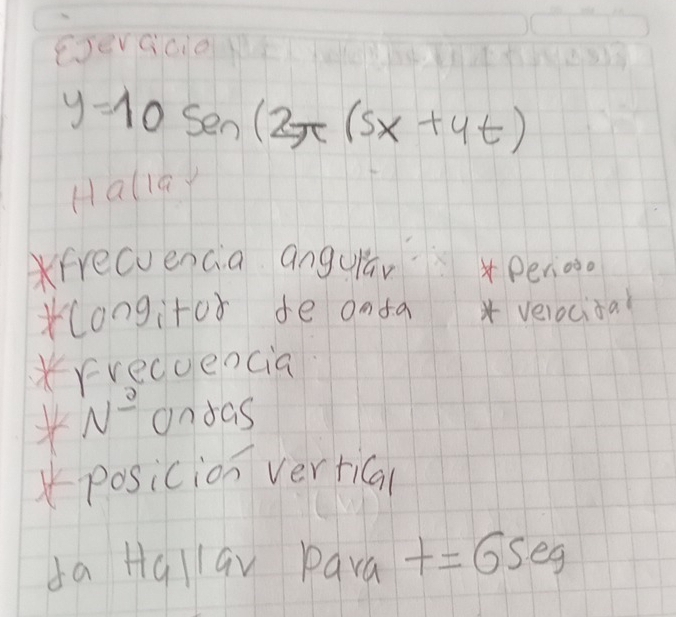 Ejercicio
y=10 Sen (2π (5x + 4t)
Hallar
*Frecuencia angular * Periodo
*Longitud de onda * velocidad
*Frecuencia
*Nº ondas
*posición vertical
da Hallar para t=6seg